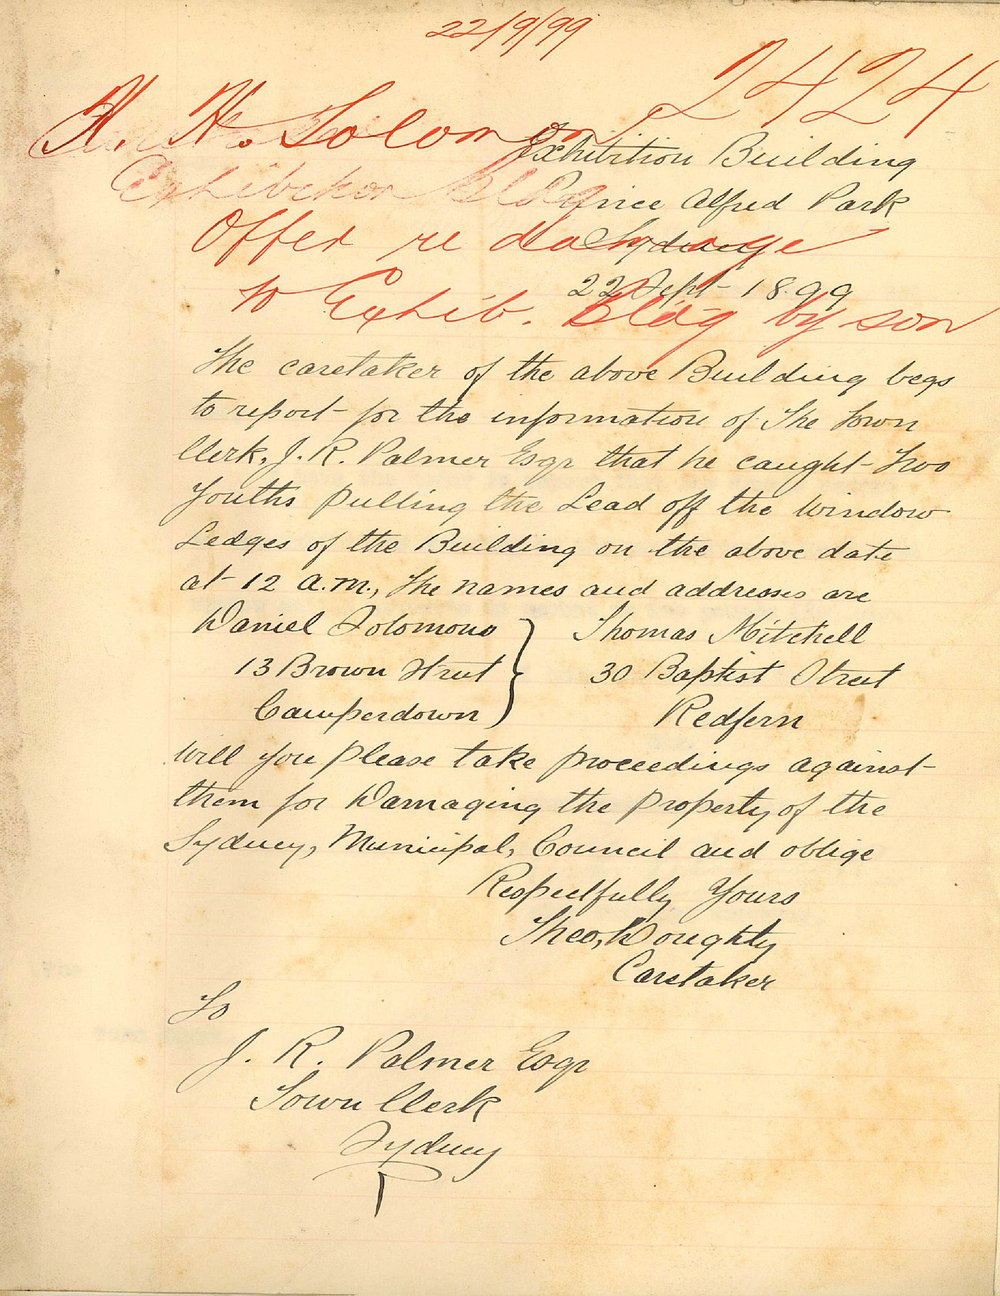 22/9/99
2424
H. H. Solomon
Exhibition Bldg
Offer re damage
to Exhib. Bldg by son
Exhibition Building
Prince Alfred Park
Sydney
22 Sept 1899
The caretaker of the above Building begs
to report for the information of The Town
Clerk, J. R. Palmer Esqr that he caught Two
Youths pulling the Lead off the window
Ledges of the Building on the above date
at 12 a.m., The names and addresses are
Daniel Solomons } Thomas Mitchell
13 Brown Street 30 Baptist Street
Camperdown Redfern
Will you please take proceedings against
them for Damaging the property of the
Sydney, Municipal, Council and oblige
Respectfully Yours
Theo, Doughty
Caretaker
To
J. R. Palmer Esqr
Town Clerk
Sydney